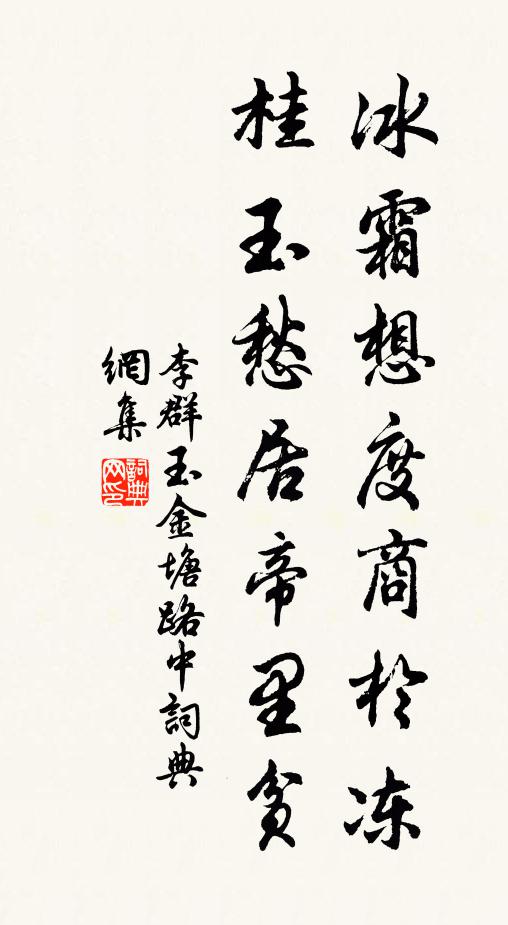 冰霜想度商於冻
桂玉愁居帝里贫
李群玉金塘路中詞典
網集
詞典网印